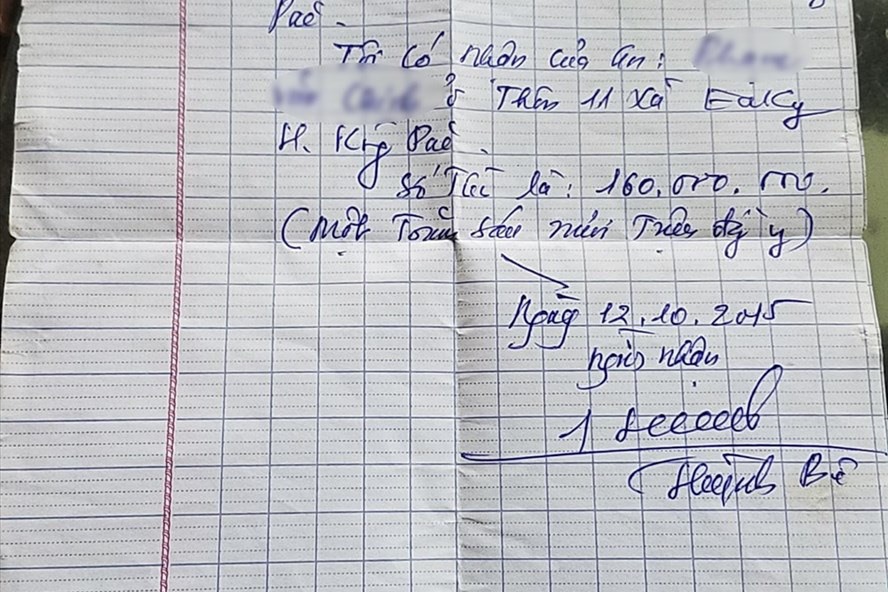 Pắc.
Tôi có nhận của ân:
ở Thôn 11 Xã EaKly
H. Krông Pắc.
Số Tiền là: 160.000.000.
(Một Trăm Sáu mươi Triệu đồng y)
Ngày 12.10.2015
người nhận
Huỳnh Bê